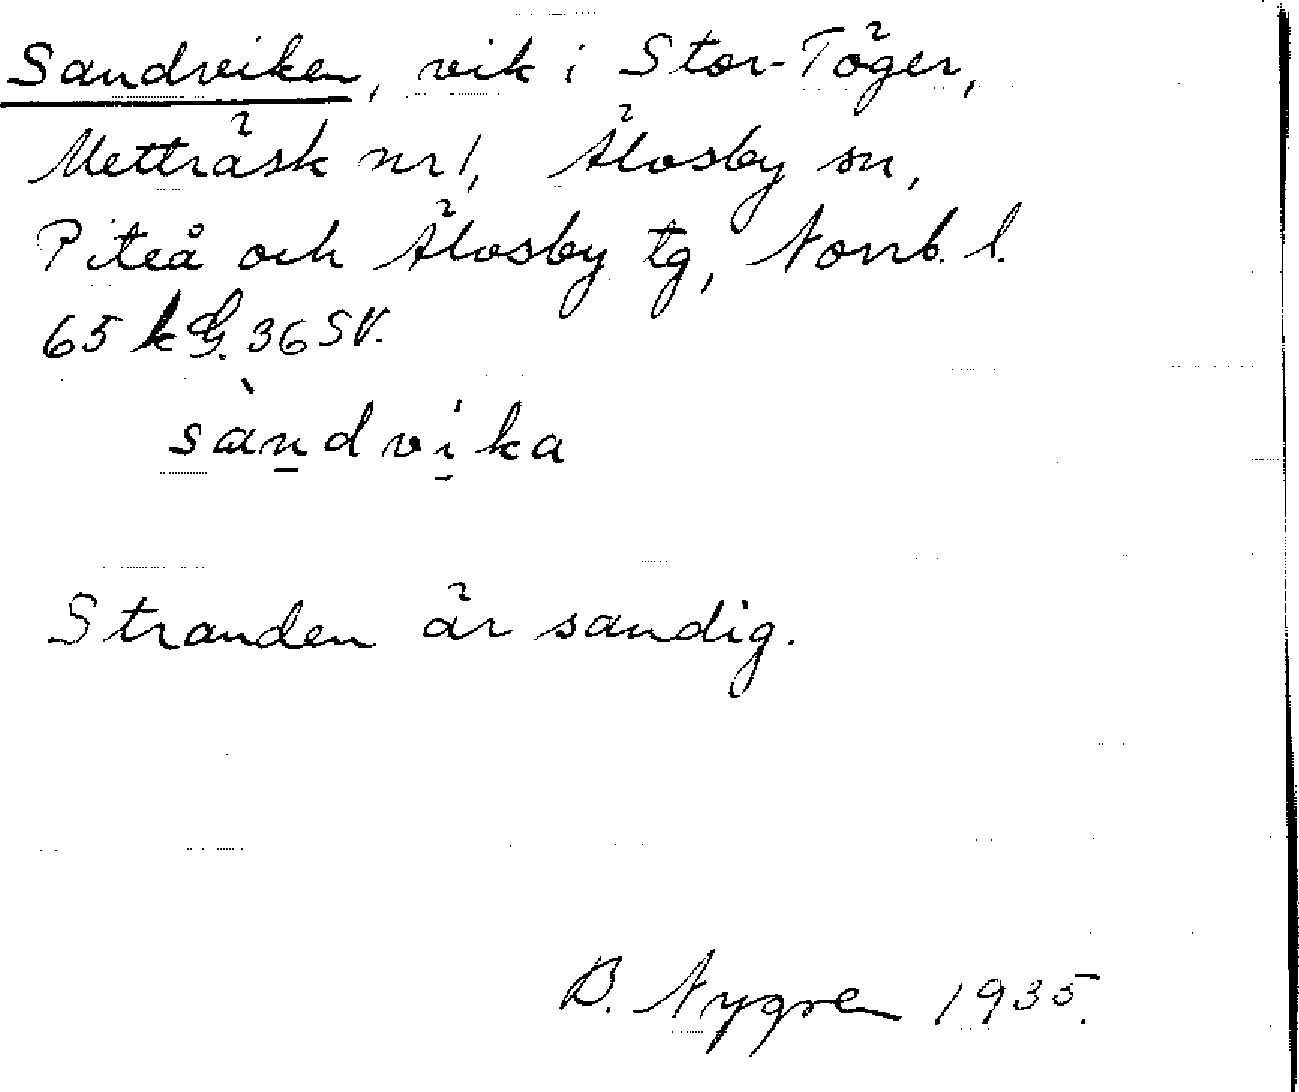 Sandviken, vik i Stor-Töger,
Metträsk nr 1, Älvsby sn,
Piteå och Älvsby tg, Norrb. l.
65 k G. 36 SV.
sàn̲dvi̲ka
Stranden är sandig.
B. Nygren 1935.